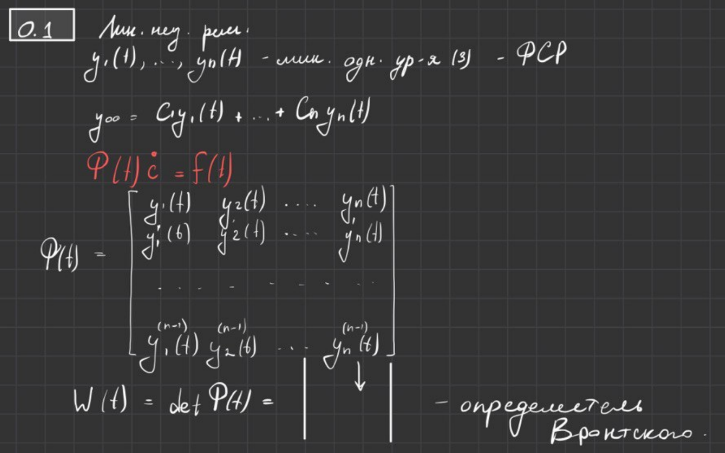 0.1 Лин. нез. реш.
y₁(t), ..., yₙ(t) - лин. одн. ур-я (3) - ФСР
y₀₀ = C₁y₁(t) + ... + Cₙyₙ(t)
Φ(t) ċ = f(t)
y₁(t) y₂(t) .... yₙ(t)
y₁'(t) y₂'(t) .... yₙ'(t)
Φ(t) =
. . . . . . . . .
y₁⁽ⁿ⁻¹⁾(t) y₂⁽ⁿ⁻¹⁾(t) ... yₙ⁽ⁿ⁻¹⁾(t)
W(t) = det Φ(t) = | ↓ | - определитель
Вронтского.